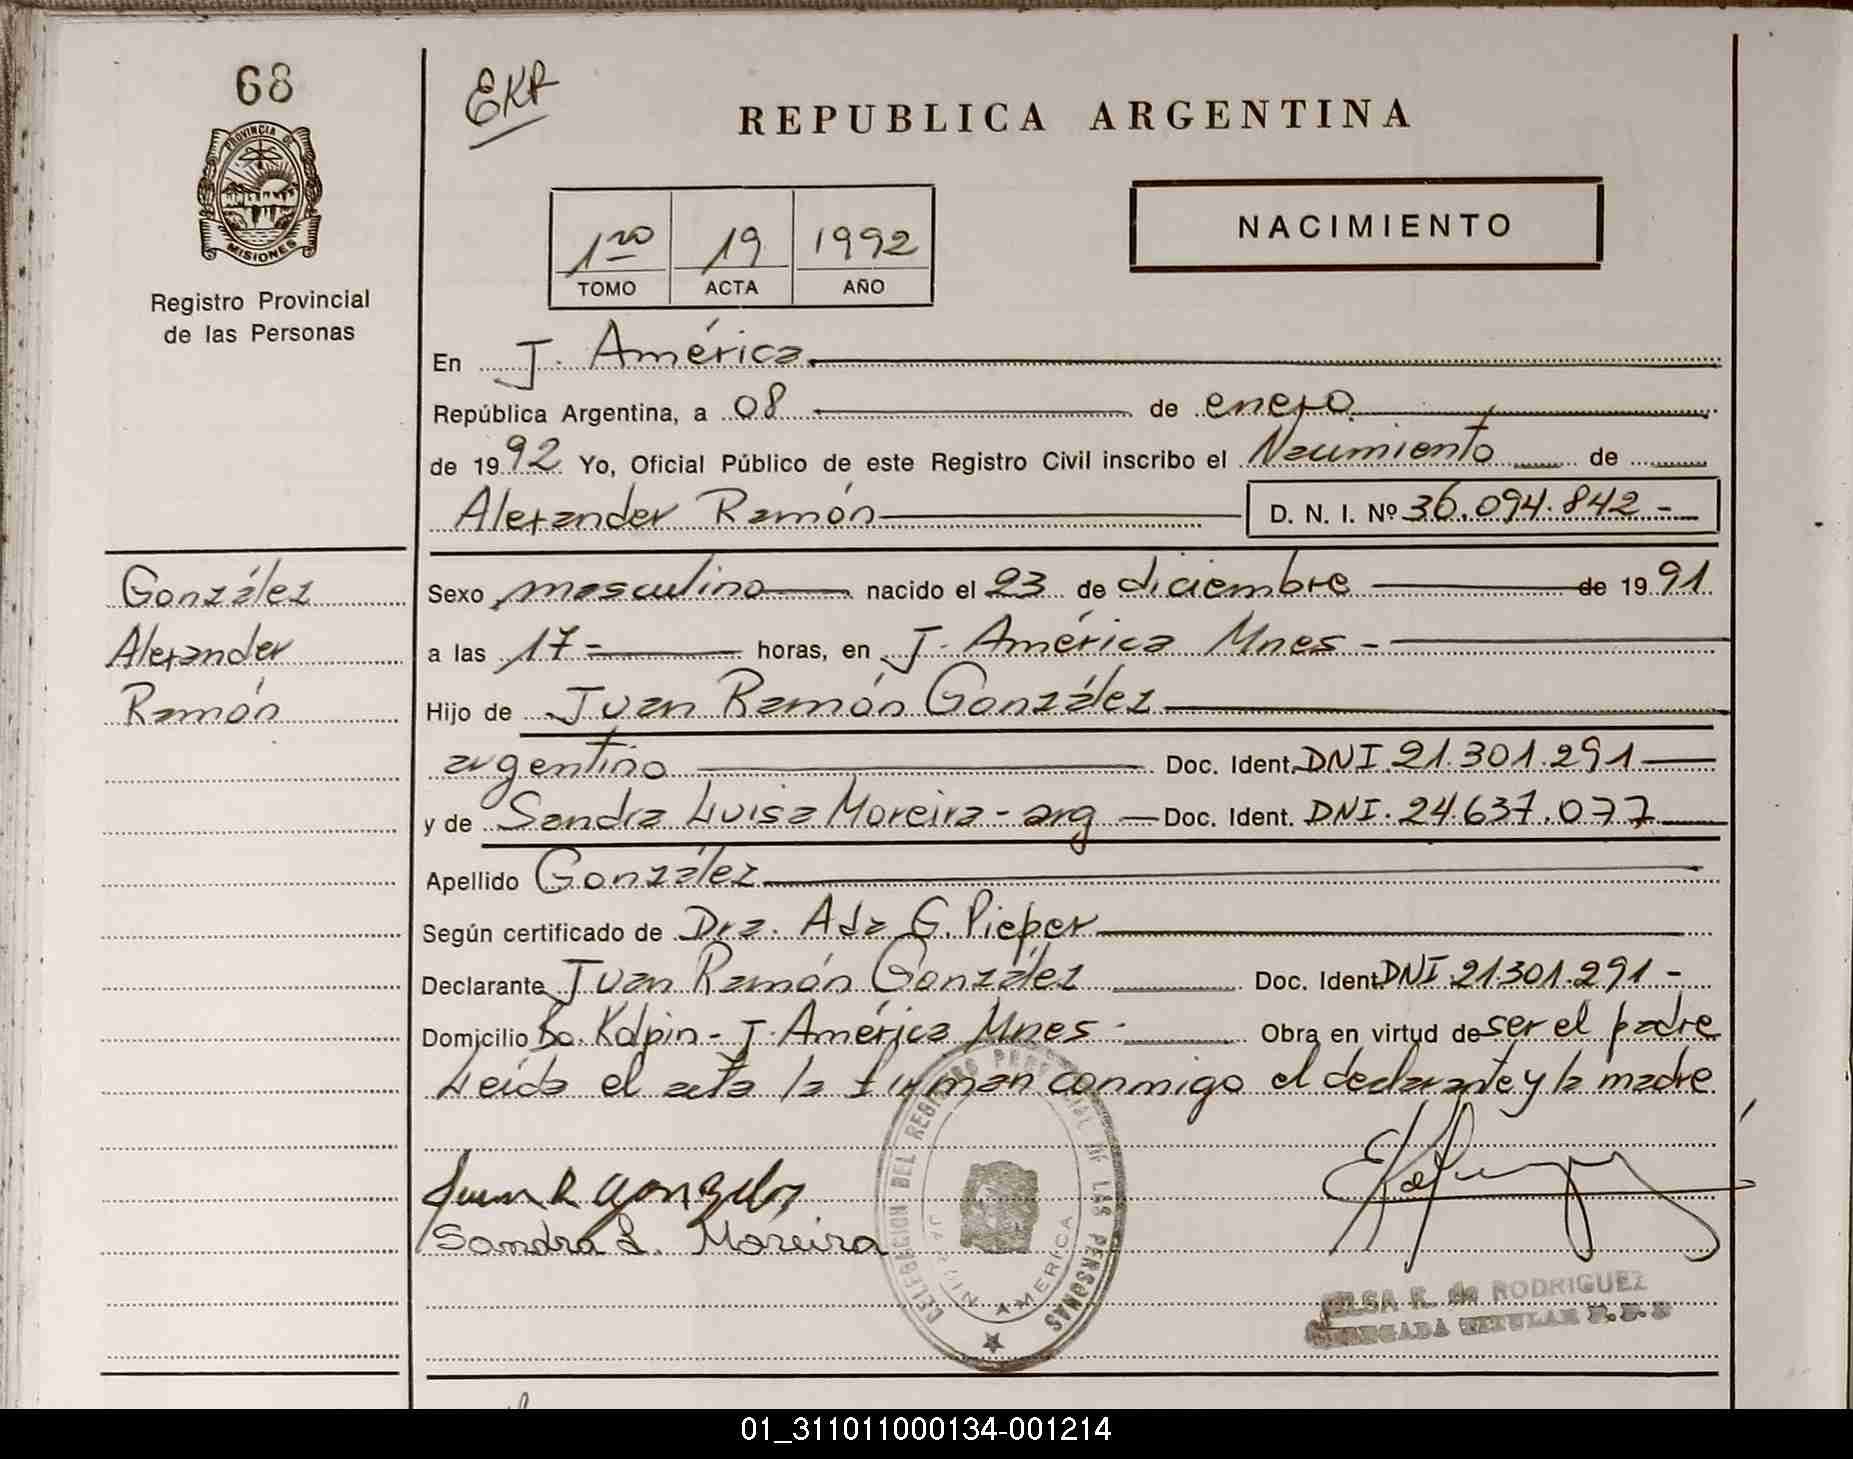 68
EKR
REPUBLICA ARGENTINA
PROVINCIA DE
MISIONES
Registro Provincial
de las Personas
NACIMIENTO
1ro 19 1992
TOMO ACTA AÑO
En J. América
República Argentina, a 08 de enero
de 1992 Yo, Oficial Público de este Registro Civil inscribo el Nacimiento de
Alexander Ramón D. N. I. Nº 36.094.842 -
González
Alexander
Ramón
Sexo masculino nacido el 23 de diciembre de 1991
a las 17- horas, en J. América Mnes -
Hijo de Juan Ramón González
argentino Doc. Ident. DNI. 21.301.291
y de Sandra Luisa Moreira - arg Doc. Ident. DNI. 24.637.077
Apellido González
Según certificado de Dra. Ada G. Pieper
Declarante Juan Ramón González Doc. Ident DNI 21301.291 -
Domicilio Bo. Kolpin - J. América Mnes - Obra en virtud de ser el padre
Leída el acta la firman conmigo el declarante y la madre
Juan R González
Sandra L. Moreira
DELEGACION DEL REGISTRO PROVINCIAL DE LAS PERSONAS
JARDIN AMERICA
ELSA K. de RODRIGUEZ
DELEGADA TITULAR R. P. P
01_311011000134-001214